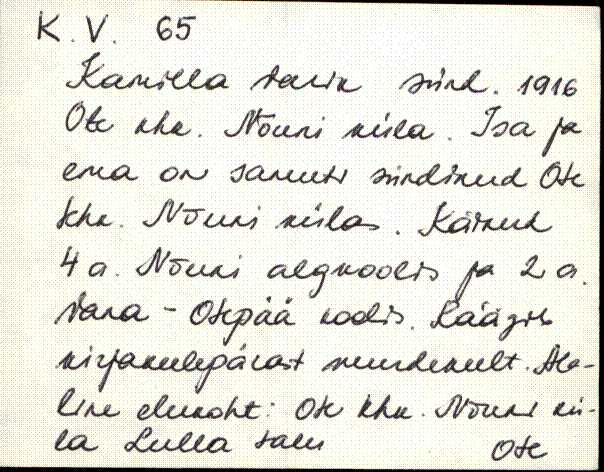 K.V. 65
Kamilla Tarik sünd. 1916
Ote khk. Nõuni küla. Isa ja
ema on samuti sündinud Ote
khk. Nõuni külas. Käinud
4 a. Nõuni algkoolis ja 2 a.
Vana-Otepää koolis. Räägib
kirjakeelepärast murdekeelt. Ala-
line elukoht: Ote khk. Nõuni kü-
la Lulla talu Ote